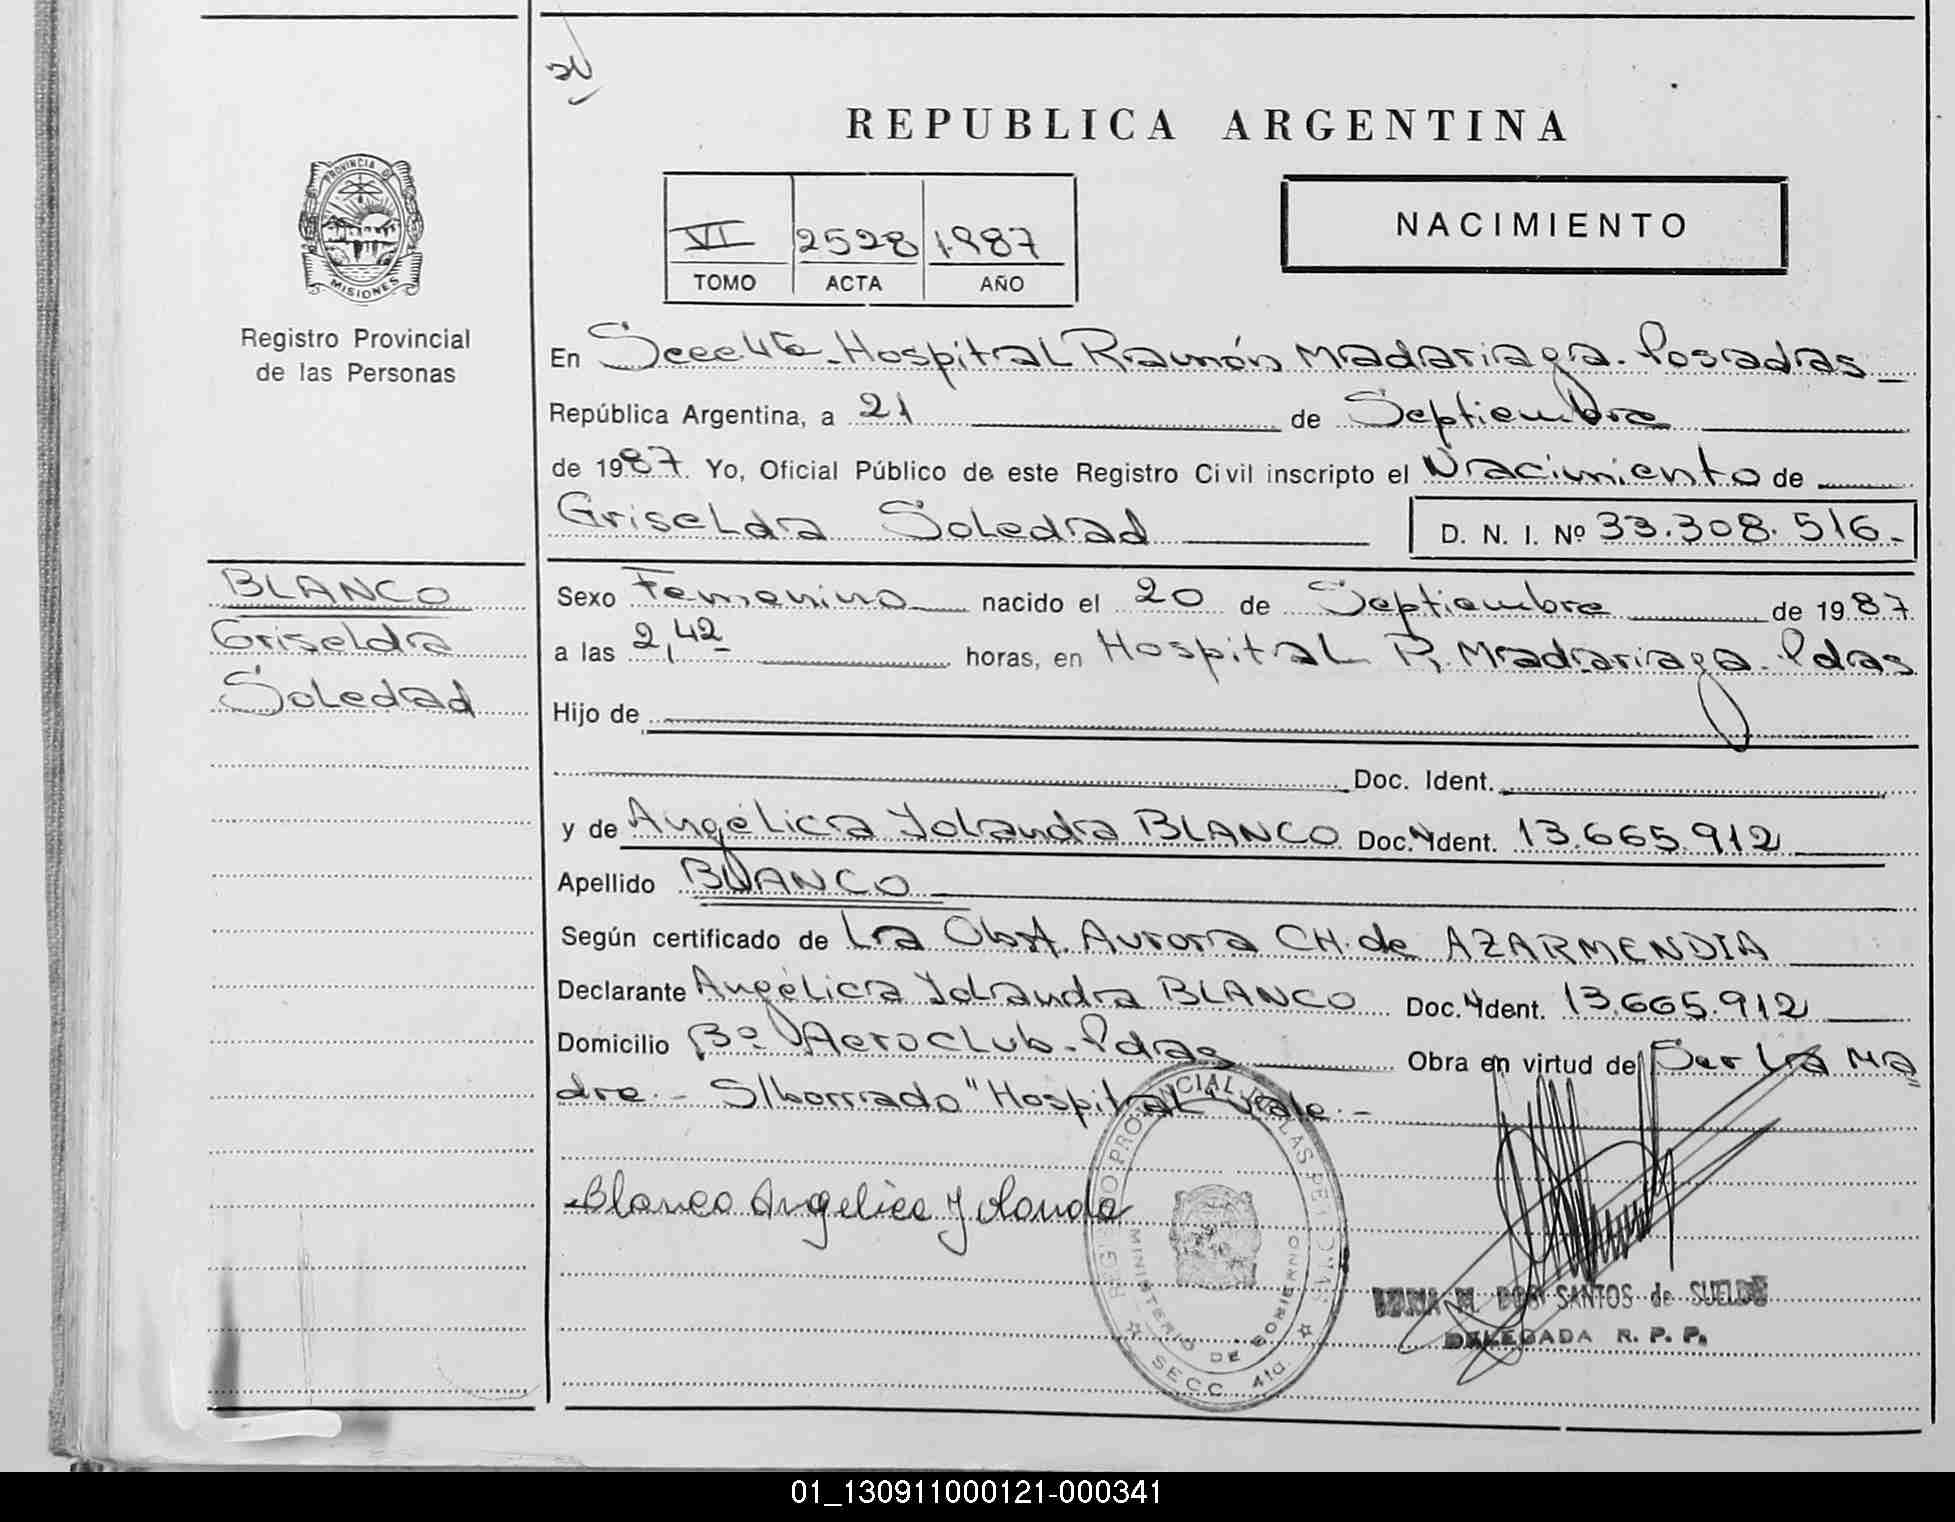 REPUBLICA ARGENTINA
PROVINCIA DE
MISIONES
Registro Provincial
de las Personas
VI 2528 1987
TOMO ACTA AÑO
NACIMIENTO
En Secc 4ta. Hospital Ramón Madariaga. Posadas
República Argentina, a 21 de Septiembre
de 1987. Yo, Oficial Público de este Registro Civil inscripto el Nacimiento de
Griselda Soledad D. N. I. Nº 33.308.516.-
BLANCO
Griselda
Soledad
Sexo Femenino nacido el 20 de Septiembre de 1987
a las 2,42 horas, en Hospital R. Madariaga. Pdas
Hijo de
Doc. Ident.
y de Angélica Yolanda BLANCO Doc. Ident. 13.665.912
Apellido BLANCO
Según certificado de La Obst. Aurora CH. de AZARMENDIA
Declarante Angélica Yolanda BLANCO Doc. Ident. 13.665.912
Domicilio Bº Aeroclub. Pdas Obra en virtud de Ser La Ma
dre.- S/borrado "Hospital vale.-
Blanco Angelica Yolanda
REGISTRO PROVINCIAL DE LAS PERSONAS
MINISTERIO DE GOBIERNO
SECC 4ta.
M. DOS SANTOS de SUELDO
DELEGADA R. P. P.
01_130911000121-000341